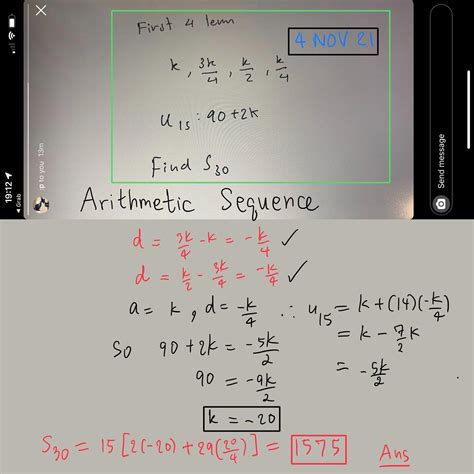 First 4 term
4 NOV 21
k, 3k/4, k/2, k/4
u₁₅ : 90 + 2k
Find S₃₀
19:12
Grab
:p to you 13m
Send message
Arithmetic Sequence
d = 3k/4 - k = -k/4 ✓
d = k/2 - 3k/4 = -k/4 ✓
a = k, d = -k/4 ∴ u₁₅ = k + (14)(-k/4)
= k - 7/2 k
= -5k/2
So 90 + 2k = -5k/2
90 = -9k/2
k = -20
S₃₀ = 15[2(-20) + 29(20/4)] = 1575 Ans